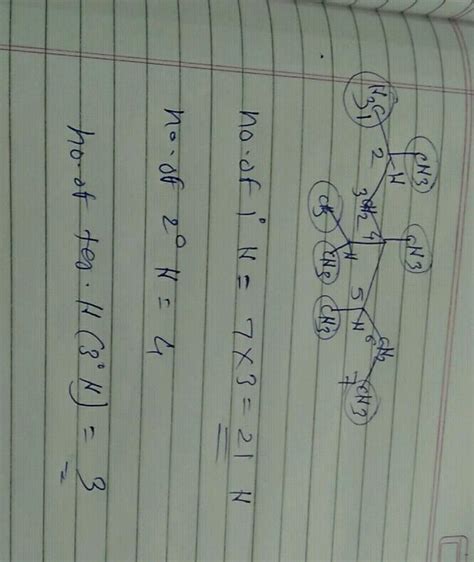 H3C 1 2 H CH3
3 CH2 4 CH3
CH3 H CH3
5 H CH3
6 CH2 7 CH3
no. of 1° H = 7 x 3 = 21 H
no. of 2° H = 4
no. of ter. H (3° H) = 3